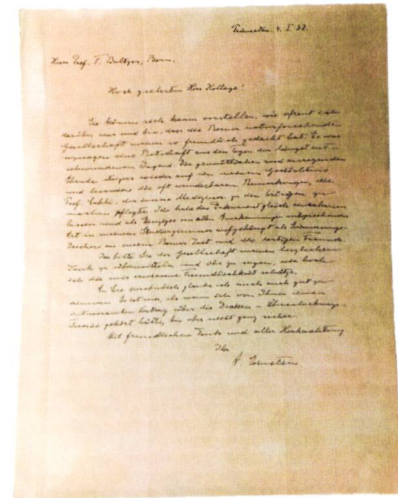 Princeton 4. I. 53.
Herrn Prof. F. Baltzer, Bern.
Hoch geehrter Herr Kollege!
Sie können sich kaum vorstellen, wie erfreut ich
darüber war und bin, dass die Berner naturforschende
Gesellschaft meiner so freundlich gedacht hat. Es war
eine Botschaft aus den Tagen der längst ent-
schwundenen Jugend. Die gemütlichen und anregenden
Abende wieder auf in meinem
und besonders die oft wunderbaren Bemerkungen, die
Prof. Sahli, der innere Mediziner, zu den Vorträgen zu
machen pflegte. Ich habe das Dokument gleich einrahmen
lassen und als einziges von allen
hat in meinem Studierzimmer aufgehängt als Erinnerungs-
Zeichen an meine Berner Zeit und die dortigen Freunde.
Ich bitte Sie der Gesellschaft meinen herzlichen
Dank zu übermitteln und ihr zu sagen, wie hoch
ich die mir erwiesene Freundlichkeit schätze.
glaube ich auch noch gut zu
Es ist mir, als wenn ich von Ihnen einen
Vortrag über die
gehört hätte, bin aber nicht ganz sicher.
Mit freundlichem Dank und aller Hochachtung
Ihr
A. Einstein